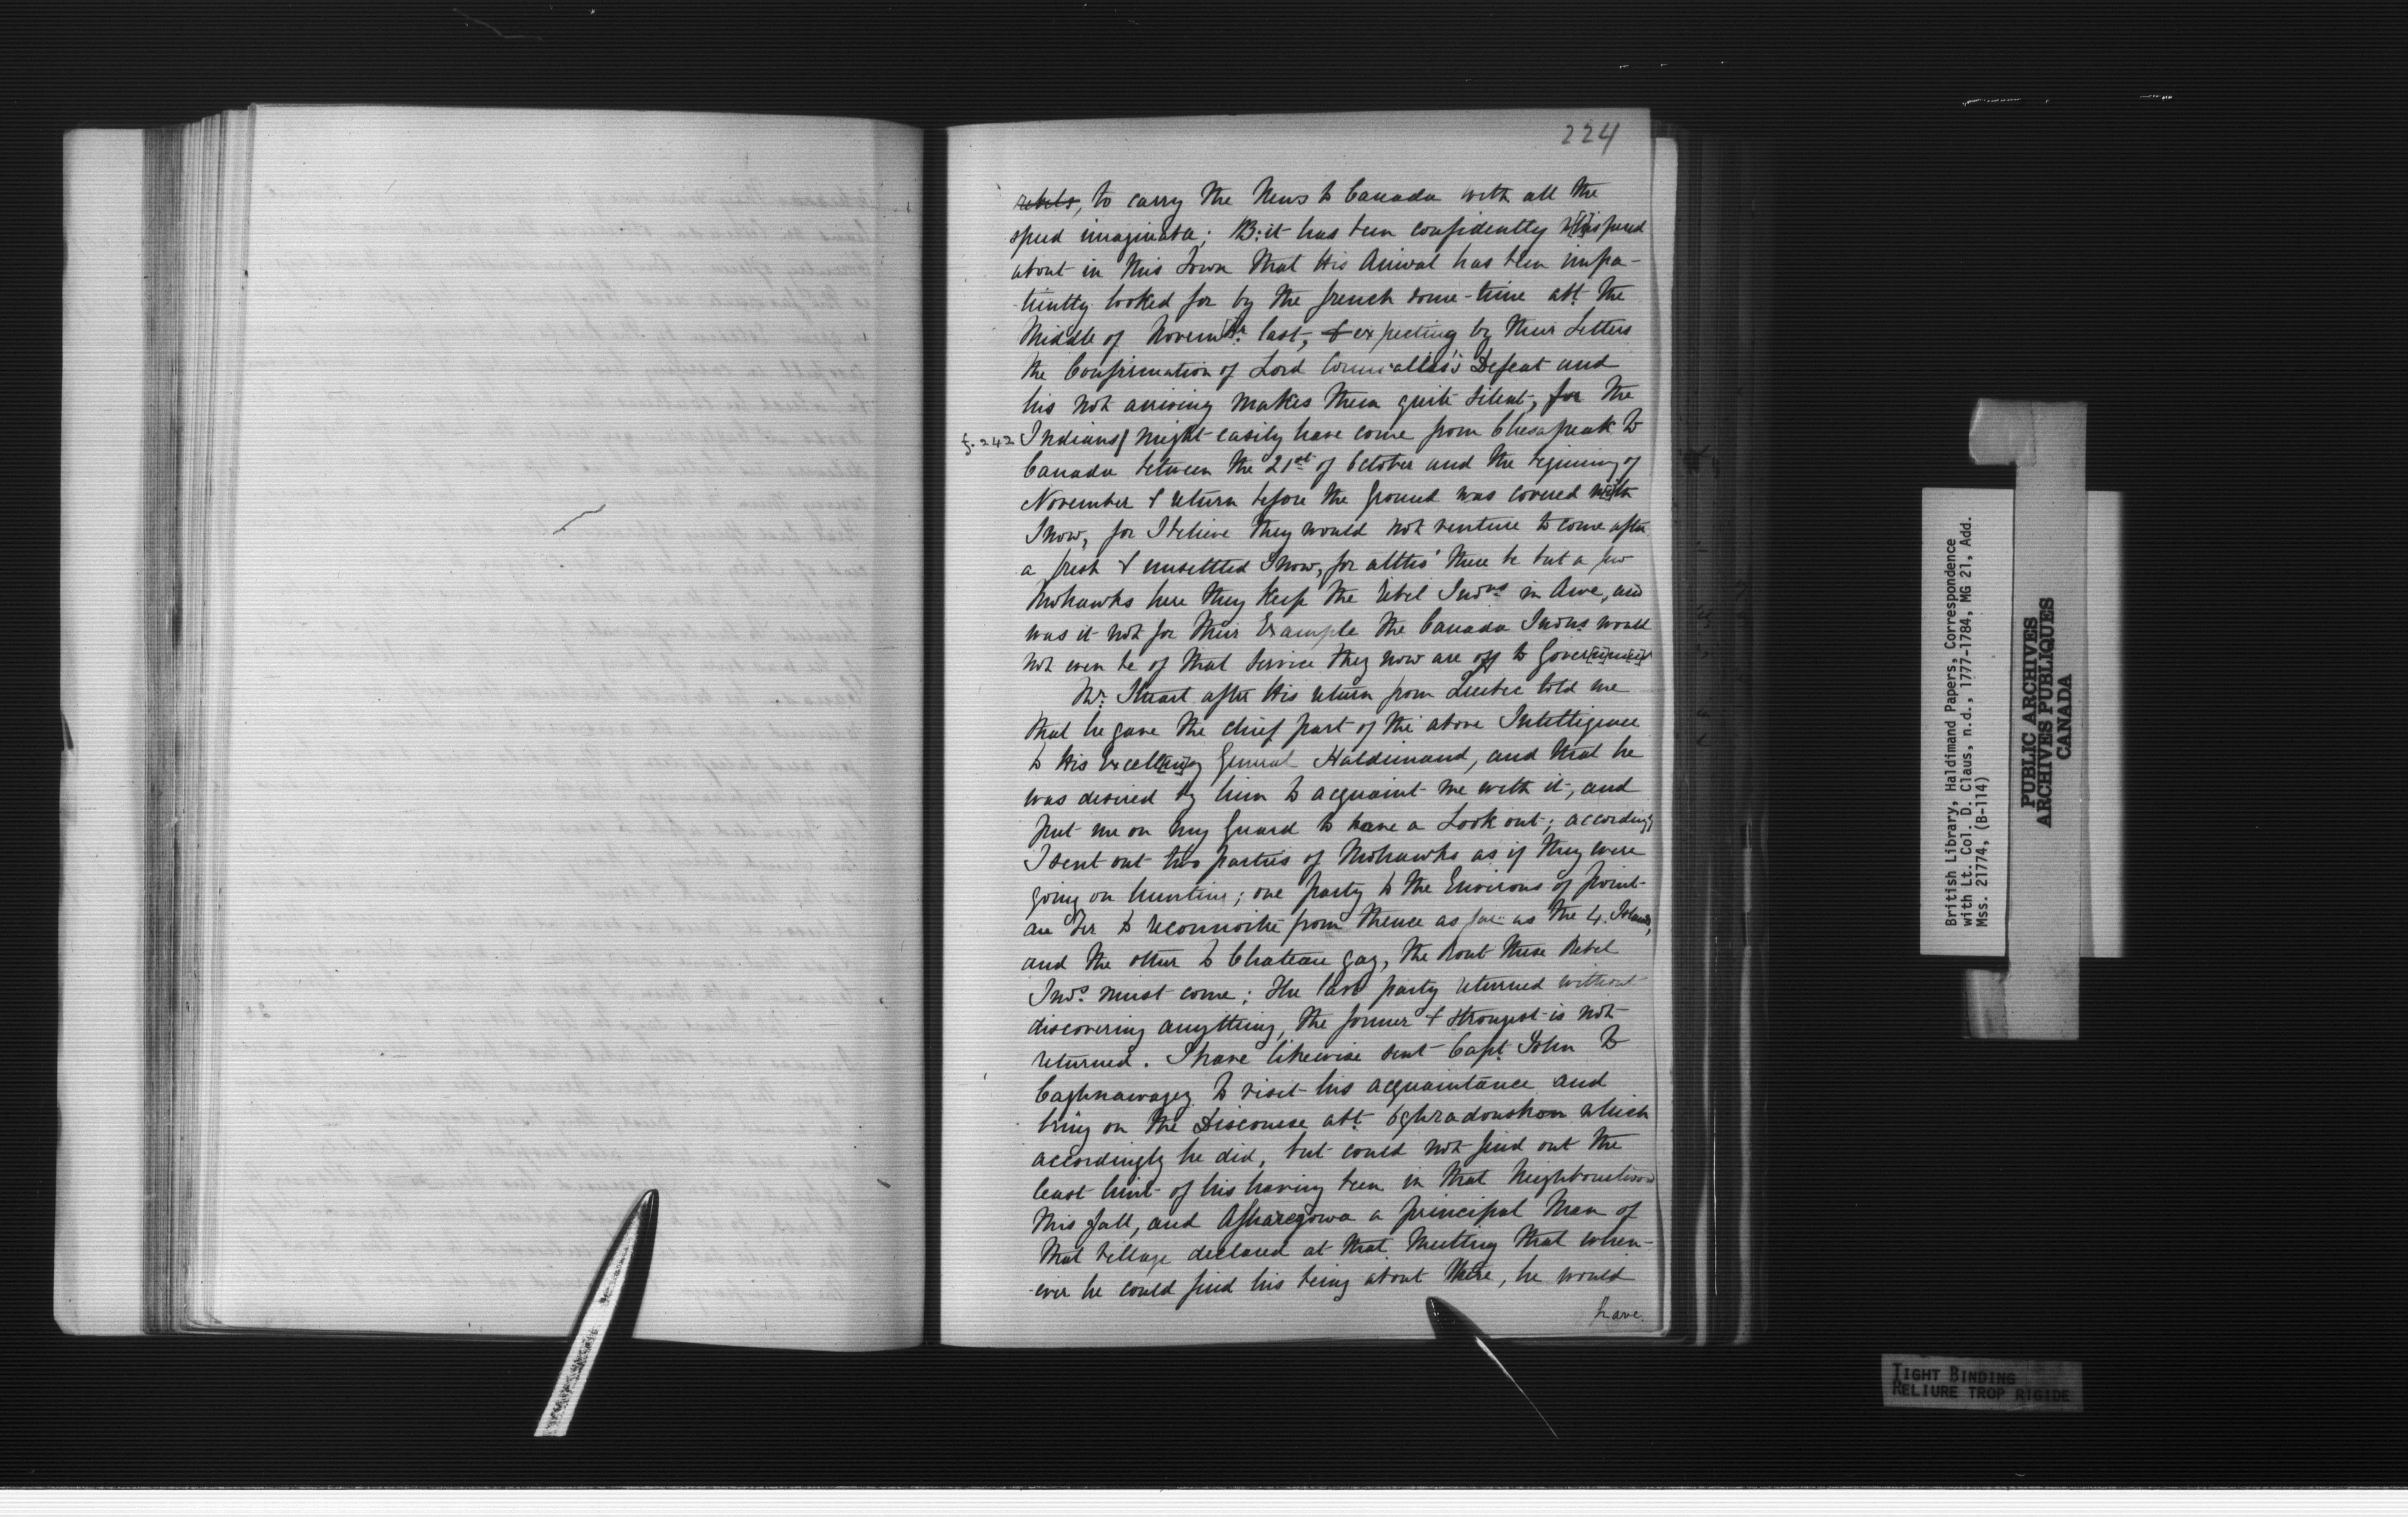 224
rebels, to carry the News to Canada with all the
speed imaginable; B: it has been confidently w[h]ispered
about in this Town that His Arrival has been impa-
-tiently looked for by the french some-time abt. the
Middle of Novem[b]r. last, & expecting by their Letters
the Confirmation of Lord Cornwallis's Defeat and
his not arriving makes them quite silent, for the
f. 242 Indians/ might easily have come from Chesapeak to
Canada between the 21st of October and the begining of
November & return before the ground was covered with
Snow, for I believe they would not venture to come after
a fresh & unsettled Snow, for altho' there be but a few
Mohawks here they keep the rebel Indns in Awe, and
was it not for their Example the Canada Indns. would
not even be of that service they now are off to Government
Mr. Stuart after His return from Quebec told me
that he gave the chief part of the above Intelligence
to His Excellency General Haldimand, and that he
was desired by him to acquaint me with it, and
put me on my Guard to have a Look out; accordingly
I sent out two parties of Mohawks as if they were
going on hunting; one party to the Environs of point-
au fer to reconnoitre from thence as far as the 4. Islands,
and the other to Chateau gay, the Rout these Rebel
Inds. must come; The last party returned without
discovering anything, the former & strongest is not
returned. I have likewise sent Capt. John to
Caghnawagey to visit his acquaintance and
bring on the Discourse abt. Oghradonshon which
accordingly he did, but could not find out the
least hint of his having been in that Neighbourhood
this fall, and Asharegowa a principal Man of
that village declared at that Meeting that when-
-ever he could find his being about there, he would
have.
British Library, Haldimand Papers, Correspondence
with Lt. Col. D. Claus, n.d., 1777-1784, MG 21, Add.
Mss. 21774, (B-114)
PUBLIC ARCHIVES
ARCHIVES PUBLIQUES
CANADA
TIGHT BINDING
RELIURE TROP RIGIDE